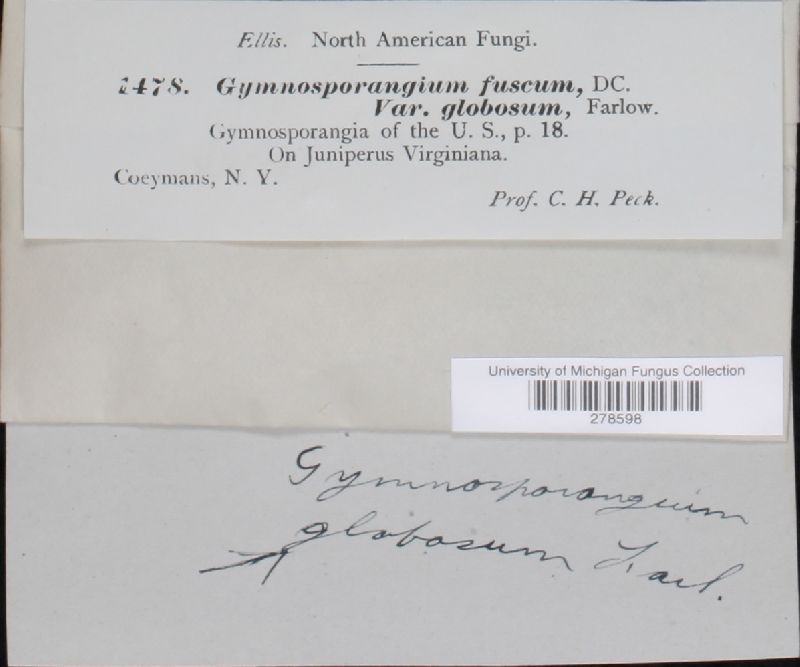 Ellis. North American Fungi.
1478. Gymnosporangium fuscum, DC.
Var. globosum, Farlow.
Gymnosporangia of the U. S., p. 18.
On Juniperus Virginiana.
Coeymans, N. Y.
Prof. C. H. Peck.
University of Michigan Fungus Collection
278598
Gymnosporangium
globosum Farl.